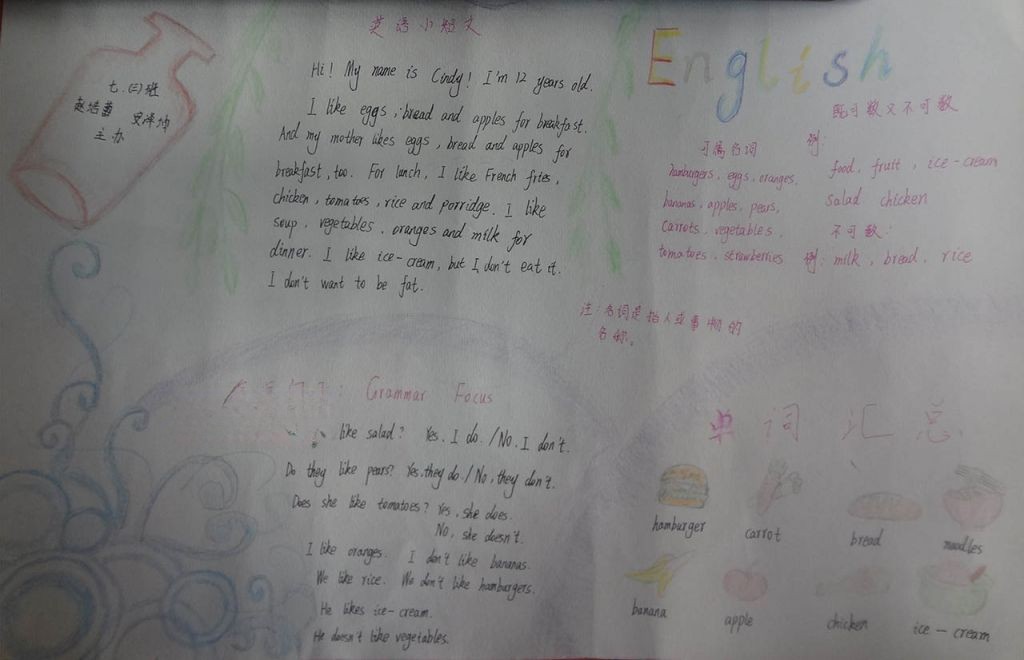 七.(三)班
主办
英语小短文
Hi! My name is Cindy! I'm 12 years old.
I like eggs, bread and apples for breakfast.
And my mother likes eggs, bread and apples for
breakfast, too. For lunch, I like French fries,
chicken, tomatoes, rice and porridge. I like
soup, vegetables, oranges and milk for
dinner. I like ice-cream, but I don't eat it.
I don't want to be fat.
English
可属名词
hamburgers, eggs, oranges,
bananas, apples, pears,
carrots, vegetables,
tomatoes, strawberries
既可数又不可数
例:
food, fruit, ice-cream
salad chicken
不可数:
例: milk, bread, rice
注:名词是指人或事物的
名称。
Grammar Focus
like salad? Yes, I do. /No, I don't.
Do they like pears? Yes, they do. / No, they don't.
Does she like tomatoes? Yes, she does.
No, she doesn't.
I like oranges. I don't like bananas.
We like rice. We don't like hamburgers.
He likes ice-cream.
He doesn't like vegetables.
单词汇总
hamburger carrot bread noodles
banana apple chicken ice-cream